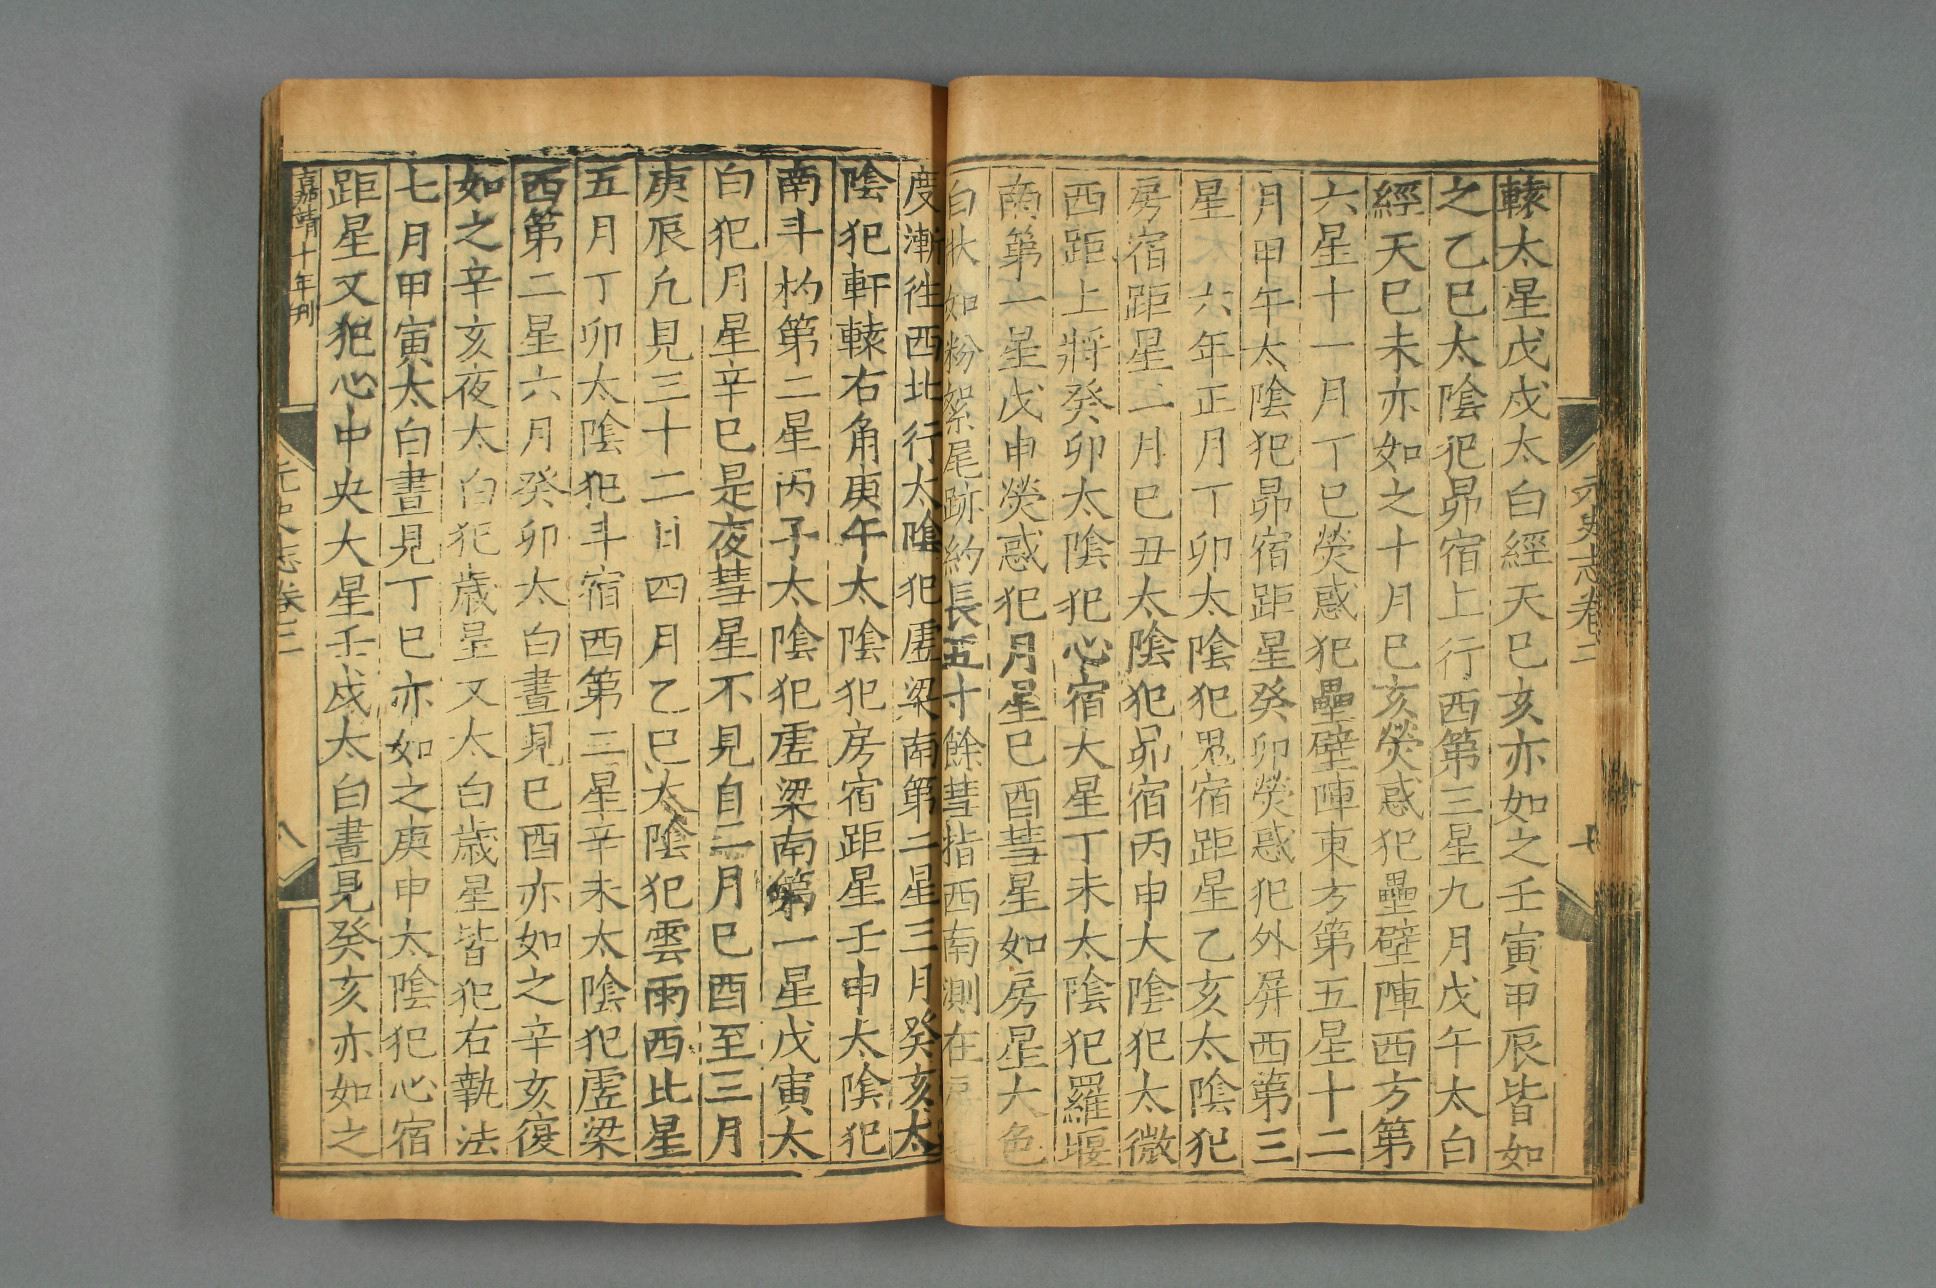 元史志卷二
轅太星戊戌太白經天巳亥亦如之壬寅甲辰皆如
之乙巳太陰犯昴宿上行西第三星九月戊午太白
經天巳未亦如之十月巳亥熒惑犯壘壁陣西方第
六星十一月丁巳熒惑犯壘壁陣東方第五星十二
月甲午太陰犯昴宿距星癸卯熒惑犯外屏西第三
星 六年正月丁卯太陰犯鬼宿距星乙亥太陰犯
房宿距星二月巳丑太陰犯昴宿丙申大陰犯太微
西距上將癸卯太陰犯心宿大星丁未太陰犯羅堰
南第一星戊申熒惑犯月星巳酉彗星如房星大色
白狀如粉絮尾跡約長五寸餘彗指西南測在
度漸徃西北行太陰犯虛梁南第二星三月癸亥太
陰犯軒轅右角庚午太陰犯房宿距星壬申太陰犯
南斗杓第二星丙子太陰犯虛梁南第一星戊寅太
白犯月星辛巳是夜彗星不見自二月巳酉至三月
庚辰凡見三十二日四月乙巳太陰犯雲雨西北星
五月丁卯太陰犯斗宿西第二星辛未太陰犯虛梁
西第二星六月癸卯太白晝見巳酉亦如之辛亥復
如之辛亥夜太白犯歲星又太白歲星皆犯右執法
七月甲寅太白晝見丁巳亦如之庚申太陰犯心宿
距星又犯心中央大星壬戌太白晝見癸亥亦如之
嘉靖十年刋
元史志卷二
八